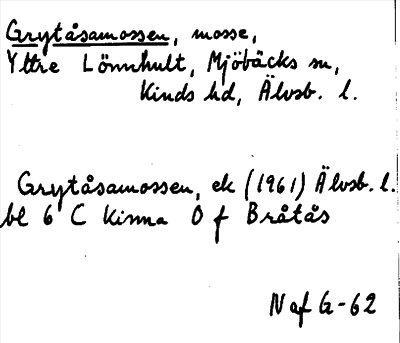 Grytåsamossen, mosse,
Yttre Lönnhult, Mjöbäcks sn,
Kinds hd, Älvsb. l.
Grytåsamossen, ek (1961) Älvsb. l.
bl 6 C Kinna O f Bråtås
N af G-62